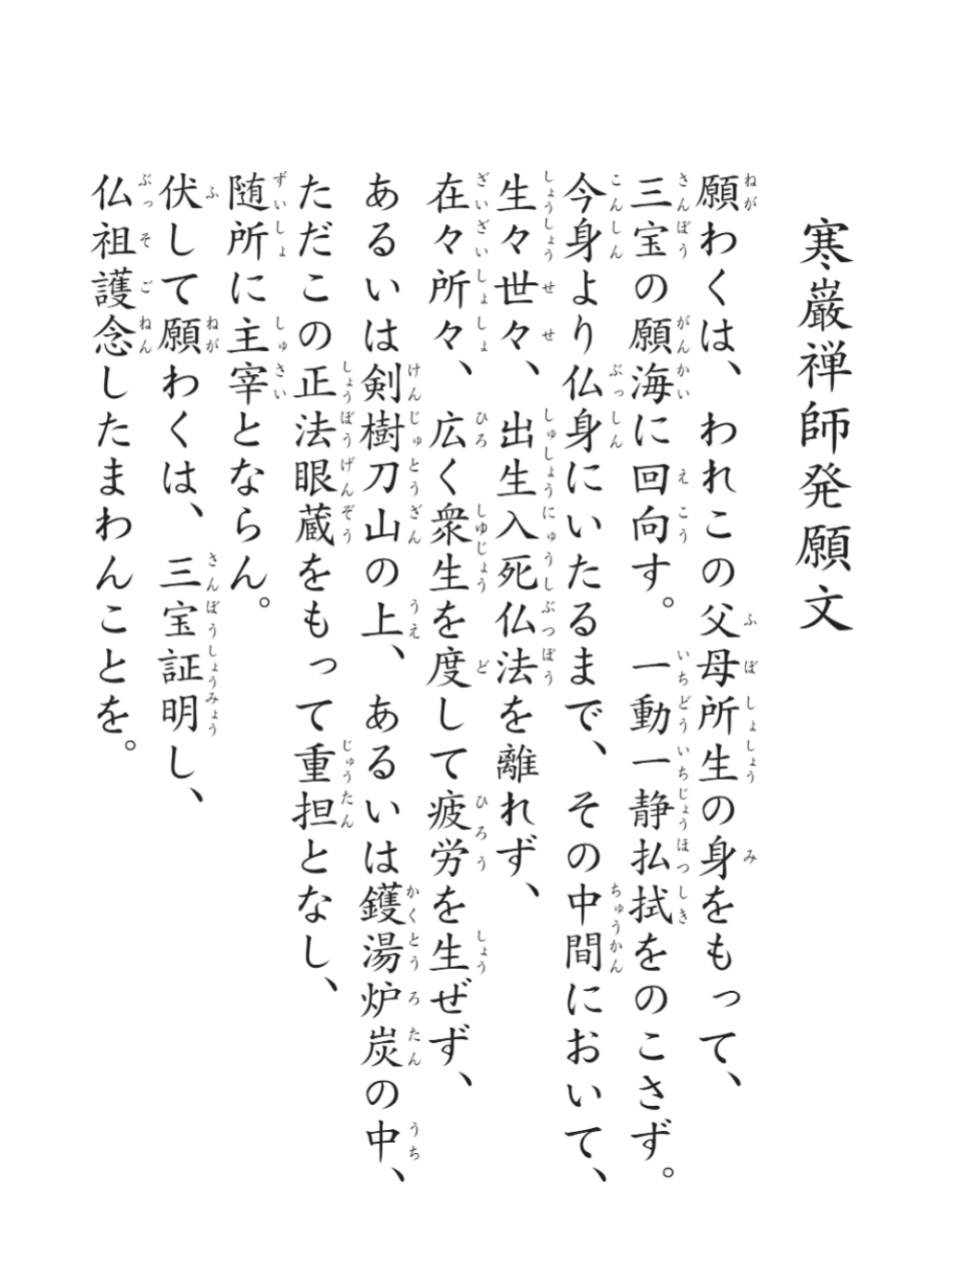 寒巌禅師発願文
願わくは、われこの父母所生の身をもって、
三宝の願海に回向す。一動一静払拭をのこさず。
今身より仏身にいたるまで、その中間において、
生々世々、出生入死仏法を離れず、
在々所々、広く衆生を度して疲労を生ぜず、
あるいは剣樹刀山の上、あるいは鑊湯炉炭の中、
ただこの正法眼蔵をもって重担となし、
随所に主宰とならん。
伏して願わくは、三宝証明し、
仏祖護念したまわんことを。